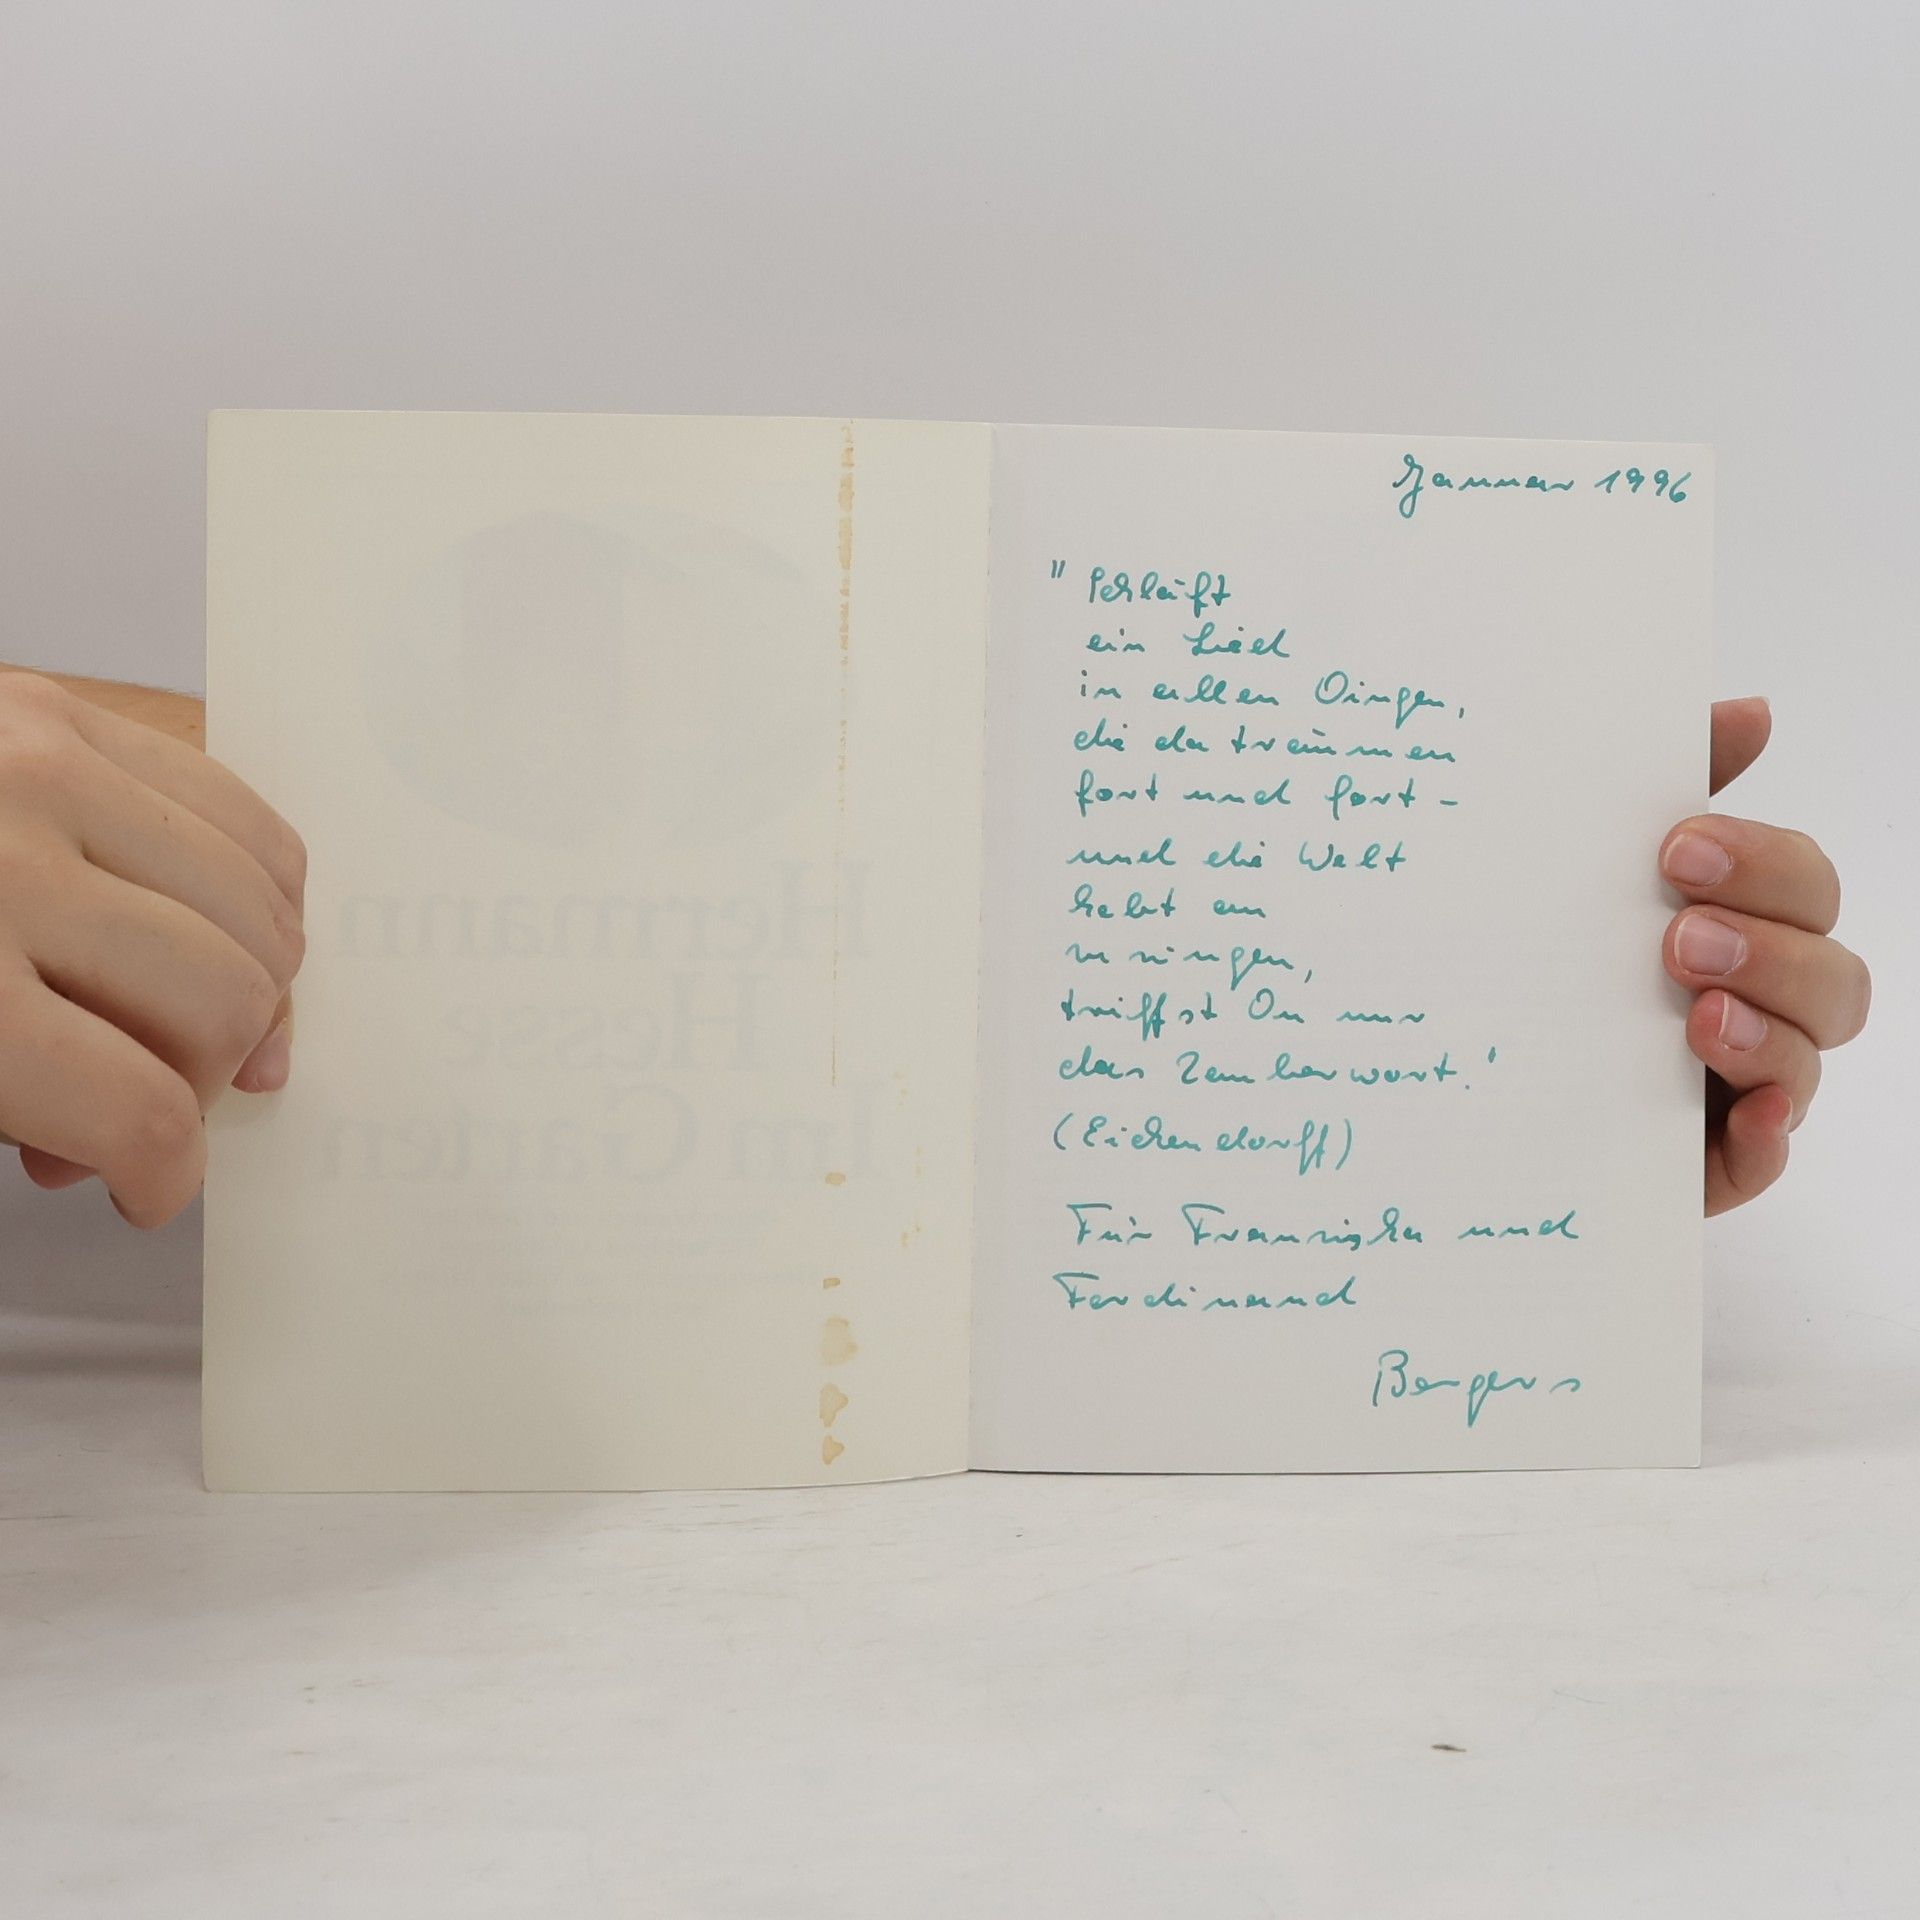 Hermann
Hesse
Im Garten
Januar 1996
"Schläft
ein Lied
in allen Dingen,
die da träumen
fort und fort -
und die Welt
hebt an
zu singen,
triffst Du nur
das Zauberwort."
(Eichendorff)
Für Franziska und
Ferdinand
Bergers